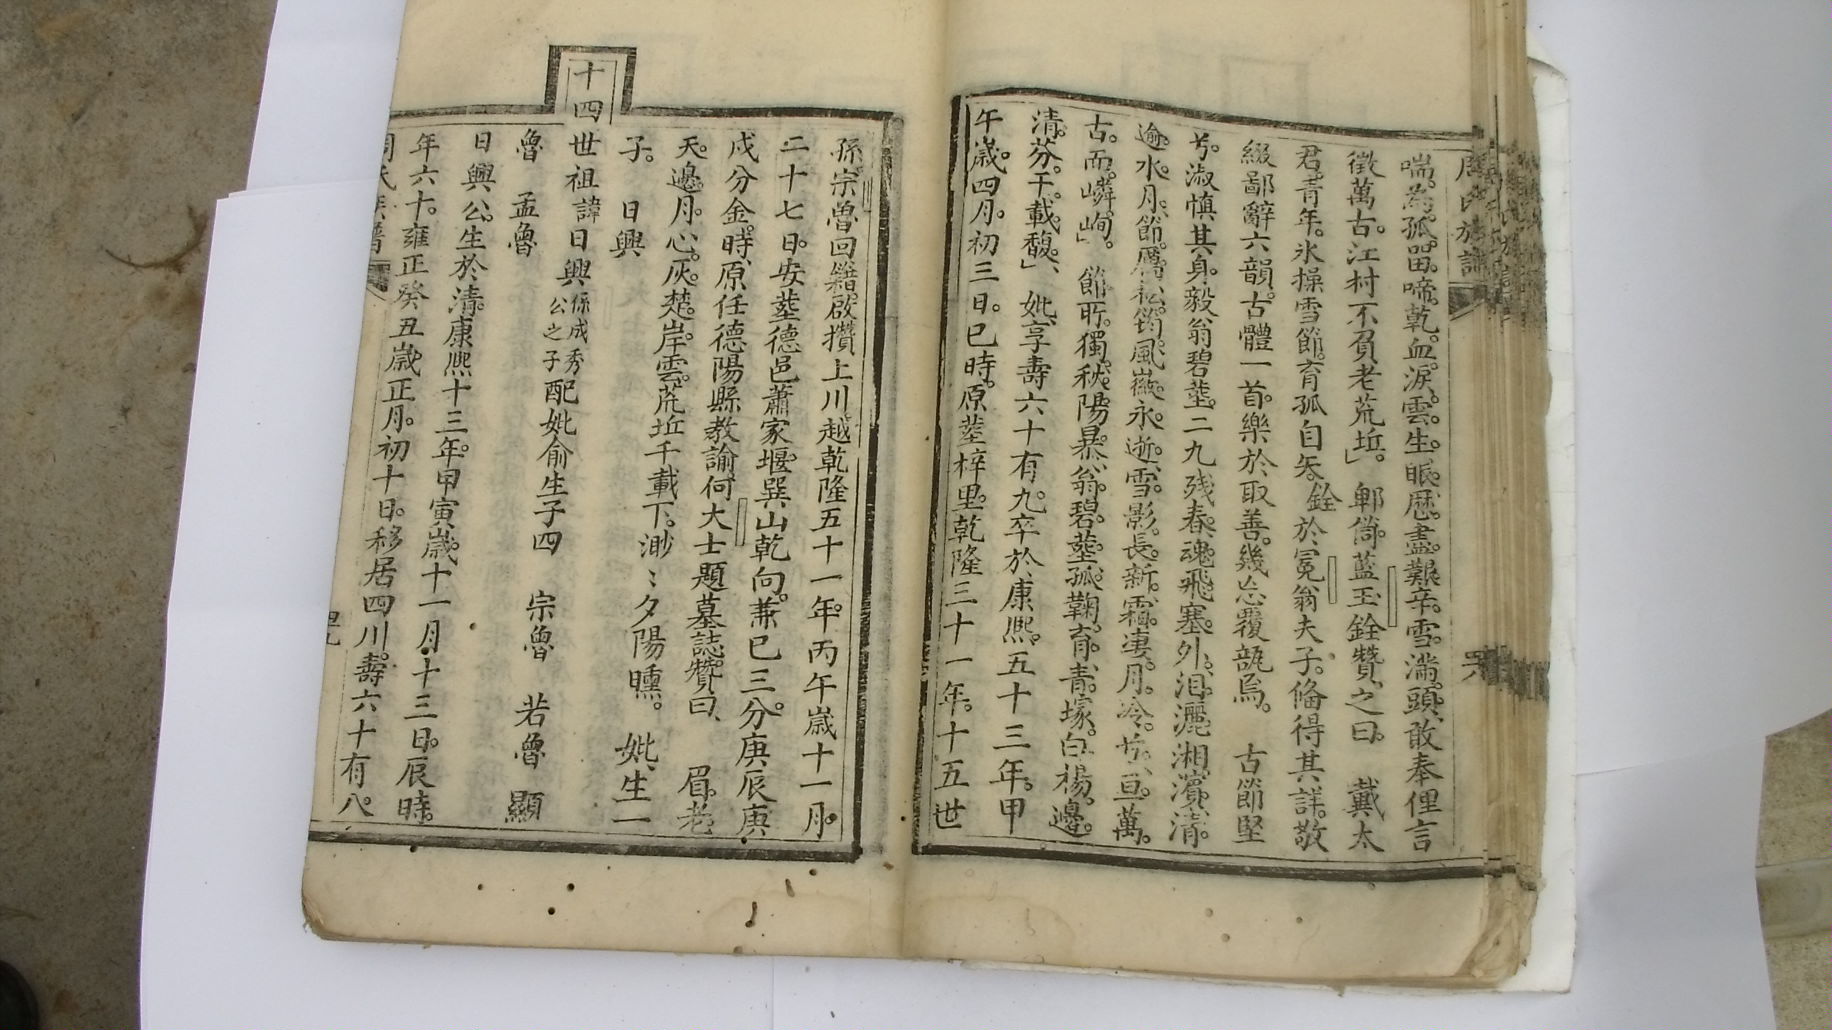 周氏族譜
喘。為。孤。㽞。啼。乾。血。淚。雲。生。眼。歴。盡。艱。辛。雪。滿。頭。敢奉俚言
徵萬古。江村不負老荒坵。」 郫筒。藍玉銓贊之曰。 戴太
君。青年。氷操雪節。育孤自矢。銓於冕翁夫子。偹得其詳。敬
綴鄙辭六韻。古體一首。樂於取善。幾忘覆瓿焉。 古節堅
兮。淑慎其身。毅翁碧塟。二九残春。魂飛塞外。泪灑湘濵。清。
逾。水。月。節。厲。松。筠。風。徽。永。逝。雪。影。長。新。霜。凄。月。冷。亘。萬。
古。而。嶙。峋。」 節所獨。秋。陽。暴。翁。碧。塟。孤。鞠。育。青。塚。白。楊。邊。
清。芬。千。載。馥。」 妣享壽六十有九。卒於康熙。五十三年。甲
午歳。四月。初三日。巳時。原塟梓里。乾隆三十一年。十五世
孫。宗魯回籍。啟攢上川。越乾隆五十一年。丙午歳十一月。
二十七日。安塟德邑蕭家堰。巽山乾向。兼巳三分。庚辰庚
戍分金。時原任德陽縣教諭。何大士題墓誌贊曰、 眉。老
天。邊。月。心。灰。楚。岸。雲。荒坵千載下。渺〻夕陽曛。 妣生一
子。 日興
十四世祖諱日興 係成秀公之子 配妣俞生子四 宗魯 若魯 顯
魯 孟魯
日興公。生於清。康熙十三年。甲寅歳。十一月。十三日。辰時。
年六十。雍正癸丑歳正月。初十日。移居四川。壽六十有八。
周氏族譜